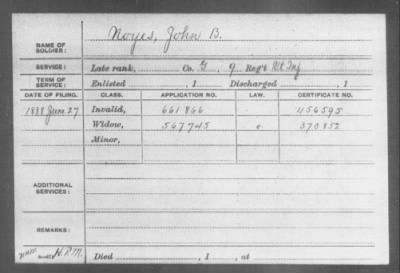 Noyes, John B.
NAME OF SOLDIER:
SERVICE: Late rank, Co. G, 9 Reg't Inf
TERM OF SERVICE: Enlisted , 1 Discharged , 1
DATE OF FILING. CLASS. APPLICATION NO. LAW. CERTIFICATE NO.
1888 June 27 Invalid, 661866 456595
Widow, 567745 370852
Minor,
ADDITIONAL SERVICES:
REMARKS:
Died , 1 , at